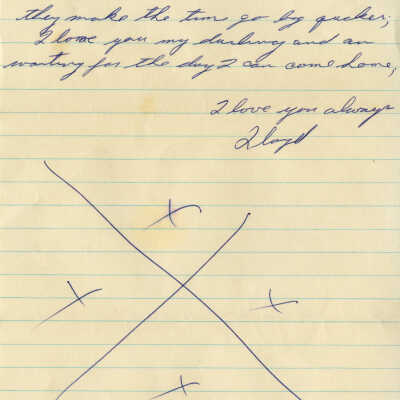 they make the time go by quicker;
I love you my darling and am
waiting for the day I can come home,
I love you always
Lloyd
X
X
X
X
X